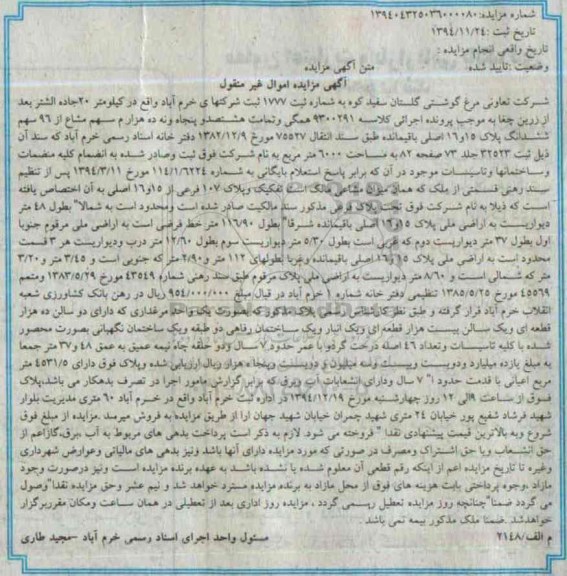 شماره مزایده:۱۳۹۴۰۴۳۲۵۰۳۶۰۰۰۰۸۰
تاریخ ثبت :۱۳۹۴/۱۱/۲۴
تاریخ واقعی انجام مزایده :
وضعیت :تایید شده متن آگهی مزایده
آگهی مزایده اموال غیر منقول
شرکت تعاونی مرغ گوشتی گلستان سفید کوه به شماره ثبت ۱۷۷۷ ثبت شرکتها ی خرم آباد واقع در کیلومتر ۲۰جاده الشتر بعد
از زرین چغا به موجب پرونده اجرائی کلاسه ۹۳۰۰۲۹۱ همگی وتمامت هشتصدو پنجاه ونه ده هزار م سهم مشاع از ۹۶ سهم
ششدانگ پلاک ۱۵و۱۶ اصلی باقیمانده طبق سند انتقال ۷۵۵۲۷ مورخ ۱۳۸۲/۱۲/۹ دفتر خانه اسناد رسمی خرم آباد که سند آن
ذیل ثبت ۳۲۵۲۳ جلد ۷۳ صفحه ۸۲ به مساحت ۶۰۰۰ متر مربع به نام شرکت فوق ثبت وصادر شده به انضمام کلیه منضمات
وساختمانها وتاسیسات موجود در آن که برابر پاسخ استعلام بایگانی به شماره ۱۱۴/۱/۶۲۲۴ مورخ ۱۳۹۴/۳/۱۱ پس از تنظیم
سند رهنی قسمتی از ملک که همان میزان مشاعی مالک است تفکیک وپلاک ۱۰۷ فرعی از ۱۵و۱۶ اصلی به آن اختصاص یافته
است که ذیلا به نام شرکت فوق تحت پلاک فرعی مذکور سند مالکیت صادر شده است ومحدود است به شمالا" بطول ۴۸ متر
دیواریست به اراضی ملی پلاک ۱۵و۱۶ اصلی باقیمانده شرقا" بطول ۱۱۶/۹۰ متر خط فرضی است به اراضی ملی مرقوم جنوبا
اول بطول ۳۷ متر دیواریست دوم که غربی است بطول ۵/۳۰ متر دیواریست سوم بطول ۱۲/۶۰ متر درب ودیواریست هر ۳ قسمت
محدود است به اراضی ملی پلاک ۱۵و۱۶ اصلی باقیمانده وغربا بطولهای ۱۱۲ متر و۲/۹۰ متر که جنوبی است و ۳/۴۵ متر و۳/۲۰
متر که شمالی است و ۸/۶۰ متر دیواریست به اراضی ملی پلاک مرقوم طبق سند رهنی شماره ۴۳۵۴۹ مورخ ۱۳۸۳/۵/۲۹ ومتمم
۴۵۵۶۹ مورخ ۱۳۸۵/۵/۲۵ تنظیمی دفتر خانه شماره ۱ خرم آباد در قبال مبلغ ۹۵۴/۰۰۰/۰۰۰ ریال در رهن بانک کشاورزی شعبه
انقلاب خرم آباد قرار گرفته و طبق نظر کارشناس رسمی پلاک مذکور که بصورت یک واحد مرغداری که دارای دو سالن ده هزار
قطعه ای ویک سالن بیست هزار قطعه ای ویک انبار ویک ساختمان رفاهی دو طبقه ویک ساختمان نگهبانی بصورت محصور
شده با کلیه تاسیسات وتعداد ۴۶ اصله درخت گردو با عمر حدود ۷ سال ودو حلقه چاه نیمه عمیق به عمق ۴۸ و۳۷ متر جمعا
به مبلغ یازده میلیارد ودویست وبیست وسه میلیون و دویست وپنجاه هزار ریال ارزیابی شده وپلاک فوق دارای ۴۵۳۱/۵ متر
مربع اعیانی با قدمت حدود ا" ۷ سال ودارای انشعابات آب وبرق که برابر گزارش مامور اجرا در تصرف بدهکار می باشد،پلاک
فوق از ساعت ۹الی ۱۲ روز چهارشنبه مورخ ۱۳۹۴/۱۲/۱۹ در اداره ثبت خرم آباد واقع در خرم آباد ۶۰ متری مدیریت بلوار
شهید فرشاد شفیع پور خیابان ۲۴ متری شهید چمران خیابان شهید جهان آرا از طریق مزایده به فروش میرسد .مزایده از مبلغ فوق
شروع وبه بالاترین قیمت پیشنهادی نقدا " فروخته می شود. لازم به ذکر است پرداخت بدهی های مربوط به آب ،برق،گازاعم از
حق انشعاب ویا حق اشتراک ومصرف در صورتی که مورد مزایده دارای آنها باشد ونیز بدهی های مالیاتی وعوارض شهرداری
وغیره تا تاریخ مزایده اعم از اینکه رقم قطعی آن معلوم شده یا نشده باشد به عهده برنده مزایده است ونیز درصورت وجود
مازاد ،وجوه پرداختی بابت هزینه های فوق از محل مازاد به برنده مزایده مسترد خواهد شد و نیم عشر وحق مزایده نقدا"وصول
می گردد ضمنا"چنانچه روز مزایده تعطیل رسمی گردد ، مزایده روز اداری بعد از تعطیلی در همان ساعت ومکان مقرربرگزار
خواهدشد. ضمنا ملک مذکور بیمه نمی باشد .
م الف/۲۱۴۸ مسئول واحد اجرای اسناد رسمی خرم آباد -مجید طاری